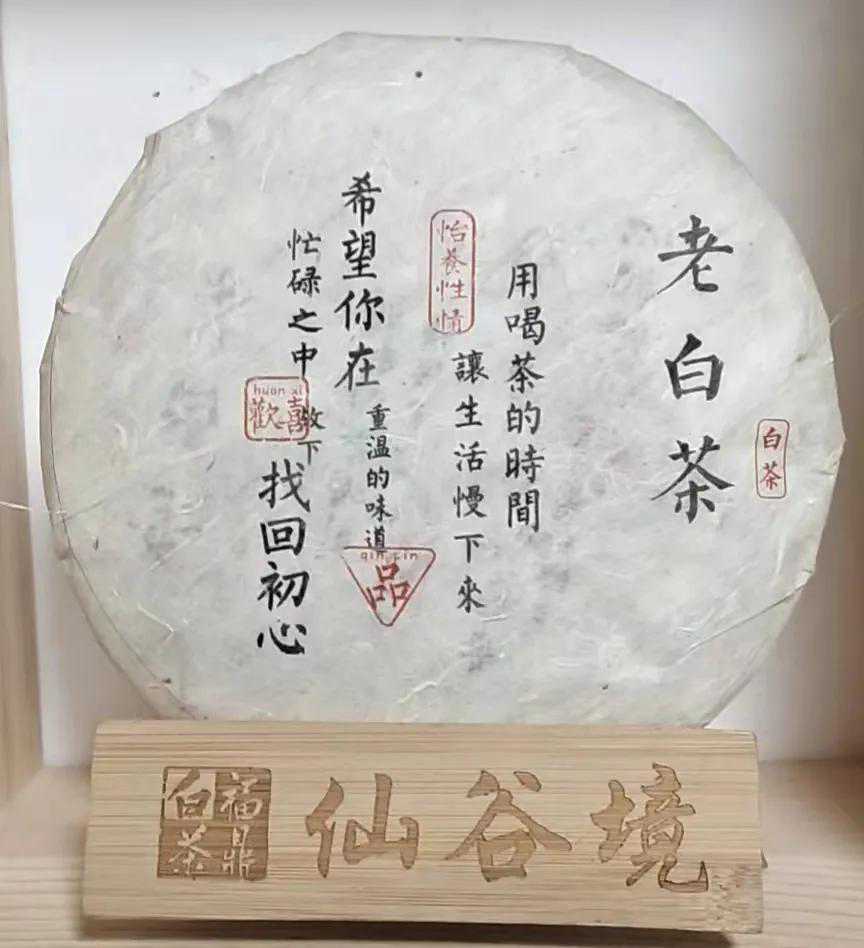 白茶
老白茶
用喝茶的時間
讓生活慢下來
怡养性情
希望你在
重溫的味道
品
忙碌之中
放下
huan xi
歡喜
找回初心
福鼎白茶
仙谷境